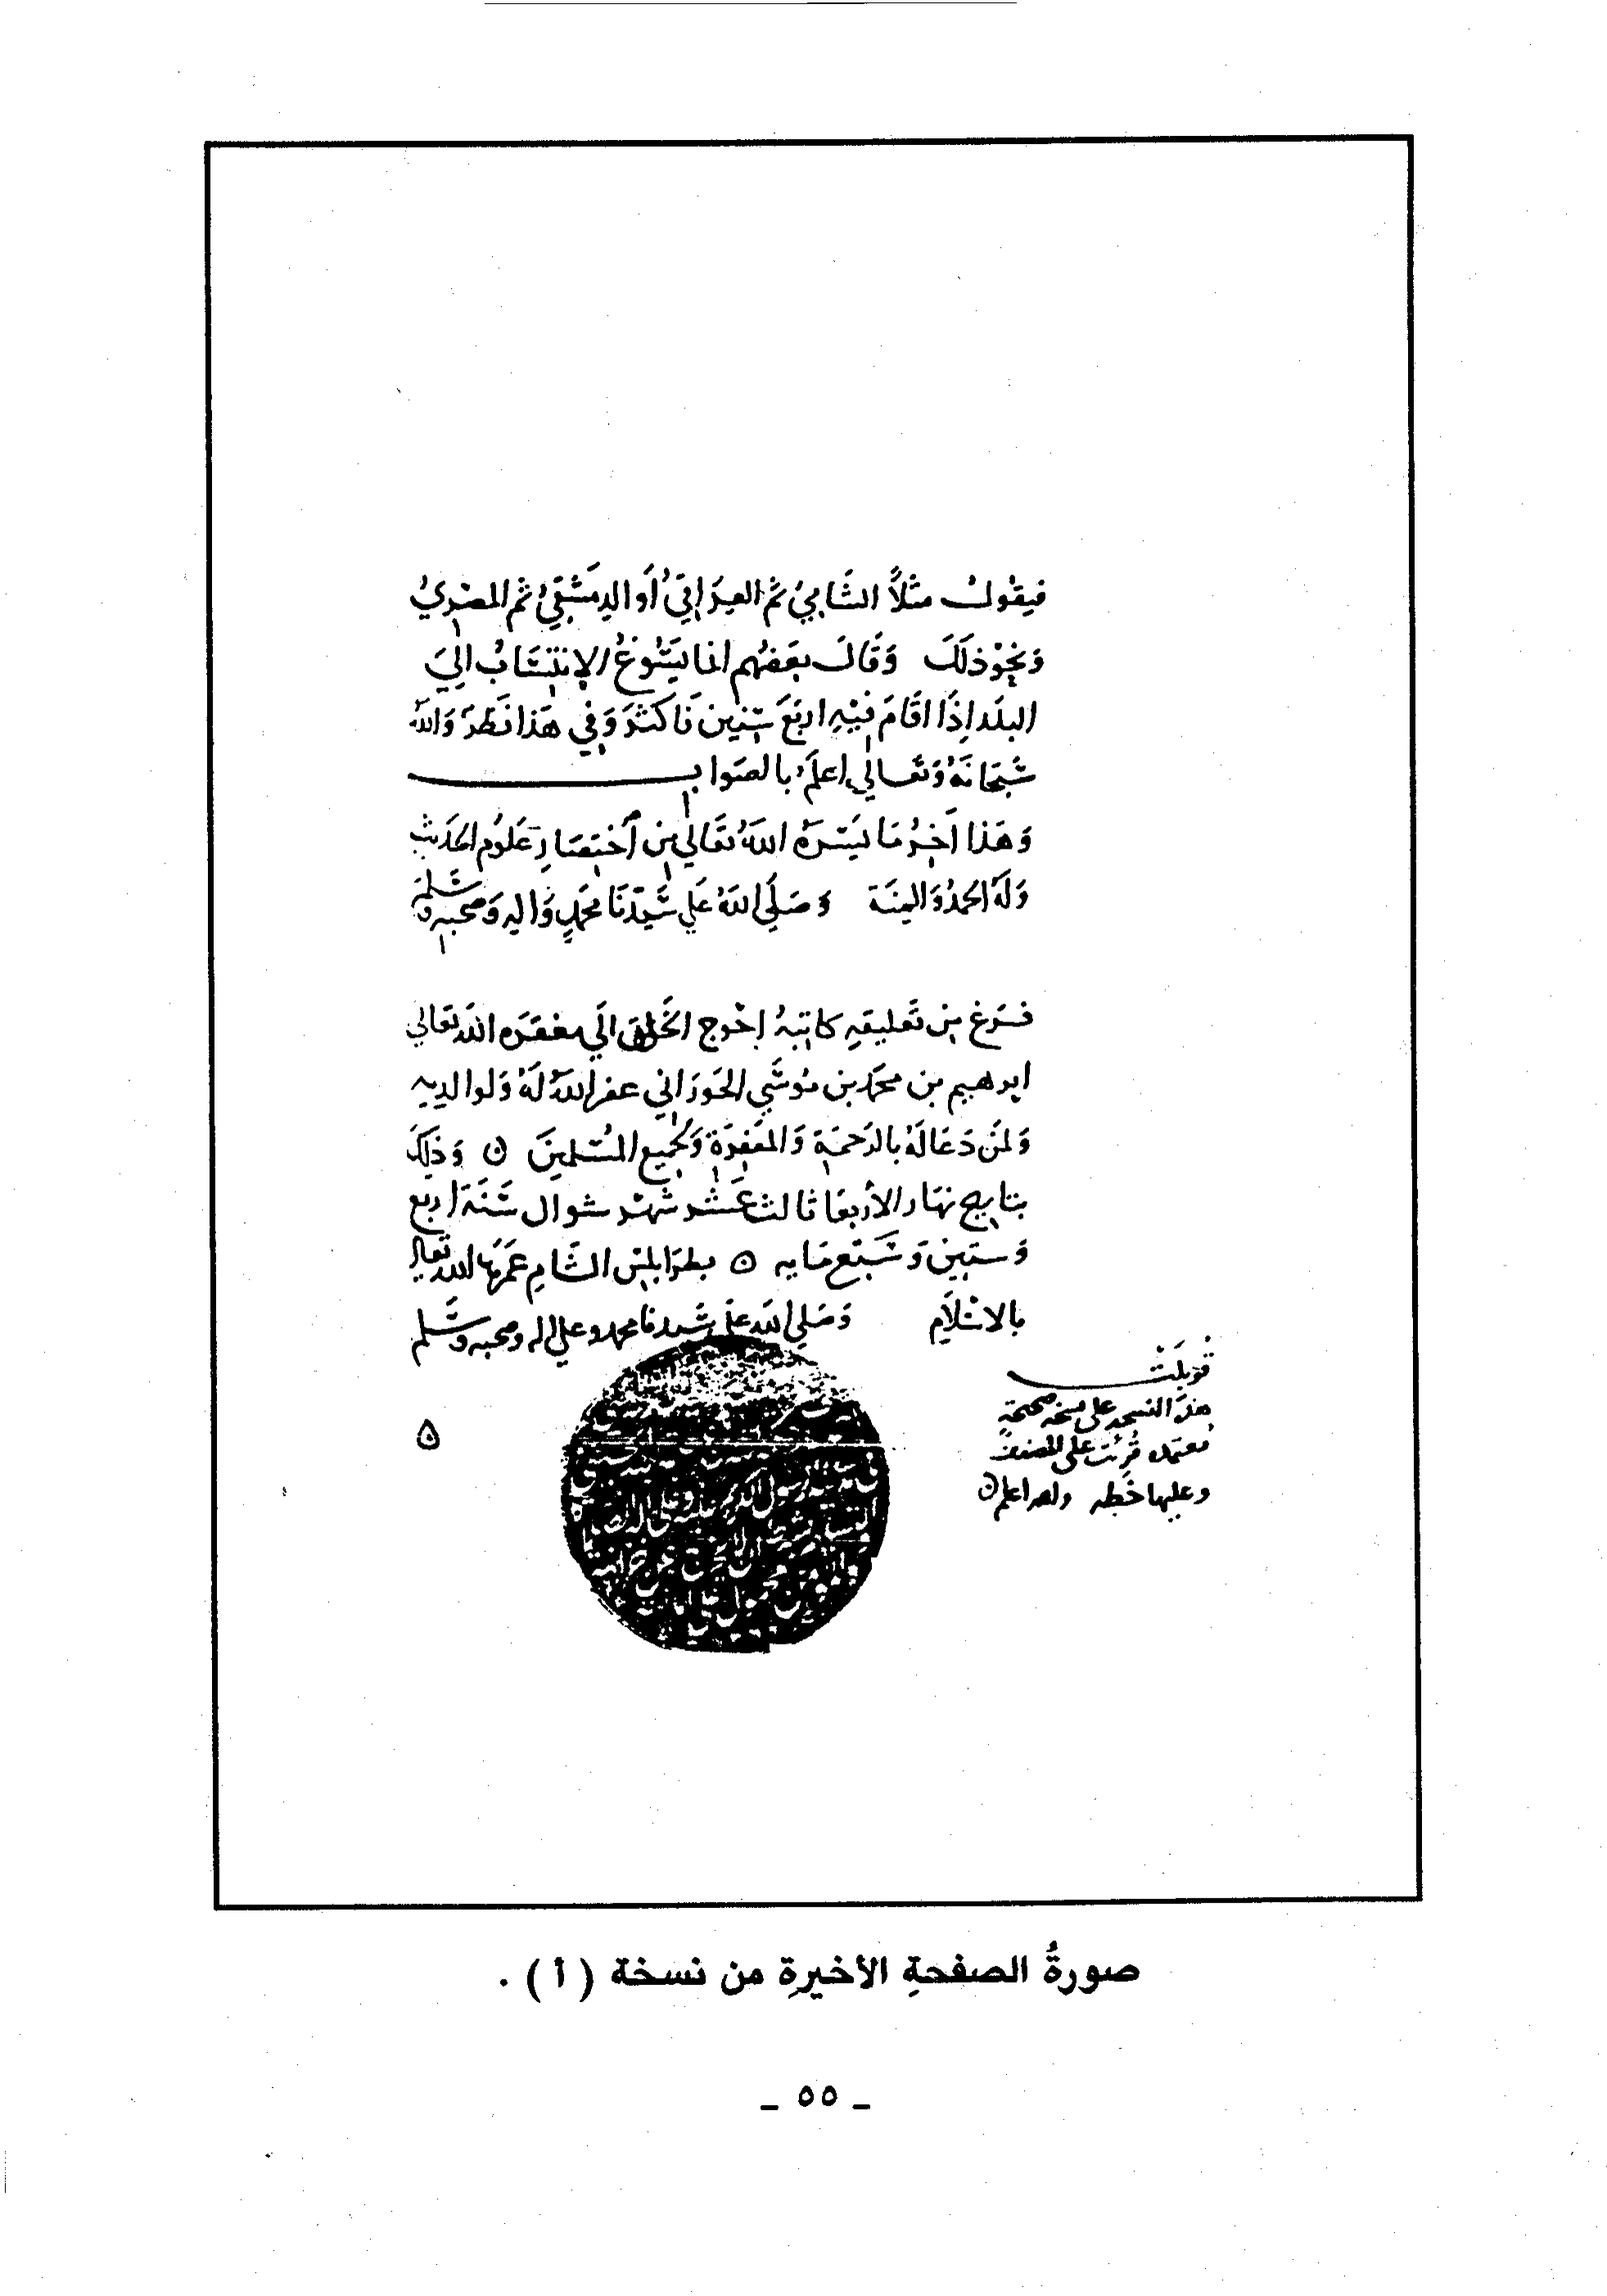 فيقول مثلًا الشَّامِيُّ ثُمَّ العِرَاقِيُّ أَو الدِمَشْقِيُّ ثم المِصْرِيُّ
وَنَحْوُ ذلَكَ وَقَالَ بَعضهُم انما يَسُوغُ الإنتِسَابُ الِيَ
البلَد إذَا اقَامَ فيْهِ اربَعَ سِنِين فَاكثَرَ وَفي هَذا نَظرٌ وَاللهُ
سُبحَانَهُ وَتعَالي اعلَمُ بالصَواب
وَهَذا آخِرُ مَا يَسَّرَهُ اللهُ تَعَالي مِن اَختِصَارِ عَلوُم الحَدَيث
وَلَهُ الحمدُ وَالمِنَة وَصَلَّي اللهُ عَلي سَيّدنَا محَمدٍ وَاله وَصحبِهِ وَسَلمَ
فَرَغ مِن تَعليقِهِ كاتبهُ احْوج الخَلق الَي مغفرَه الله تعَالي
ابرهيم بن محمَد بن مُوسَي الحَورَاني غفر اللهُ لَهُ وَلوالديه
وَلمَن دَعَا لَهُ بالرَحمَة وَالمَغفِرَة وَلجميع المُسلمينَ ٥ وَذَلِكَ
بتاريخ نهَار الأربعَا ثالث عَشر شَهْر شوال سَنَة اربع
وَستين وَسَبْع مَايه ٥ بطرَابلس الشَام عَمرَهَا الله تعالي
بالاسْلَام وَصَلي الله علَي سَيدنا محمد وعلي اله وصحبه وسَّلم
قوبلَتْ
هذه النسخه على نسخه صحيحةٍ
معتمده قُرِئت على المصنف
وعليها خطه والله اعلم ٥
٥
صورةُ الصفحةِ الأخيرةِ من نسخة ( أ ) .
ـ ٥٥ ـ